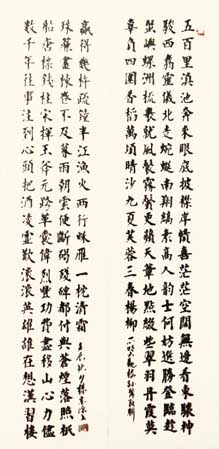 五百里滇池奔來眼底披襟岸幘喜茫茫空闊無邊看東驤神
駿西翥靈儀北走蜿蜒南翔縞素高人韻士何妨選勝登臨趁
蟹嶼螺洲梳裹就風鬟霧鬢更蘋天葦地點綴些翠羽丹霞莫
辜負四圍香稻萬頃晴沙九夏芙蓉三春楊柳
大觀樓孫髯翁聯
數千年往事注到心頭把酒凌虛歎滾滾英雄誰在想漢習樓
船唐標鐵柱宋揮玉斧元跨革囊偉烈豐功費盡移山心力儘
珠簾畫棟卷不及暮雨朝雲便斷碣殘碑都付與蒼煙落照祇
贏得幾杵疏鐘半江漁火兩行秋雁一枕清霜